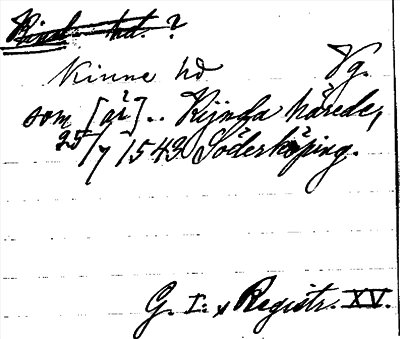 Kind hd. ?
Kinne hd Vg.
som [är] .. Kijnda härede,
25/7 1543 Söderköping.
G. I:s Registr. XV.